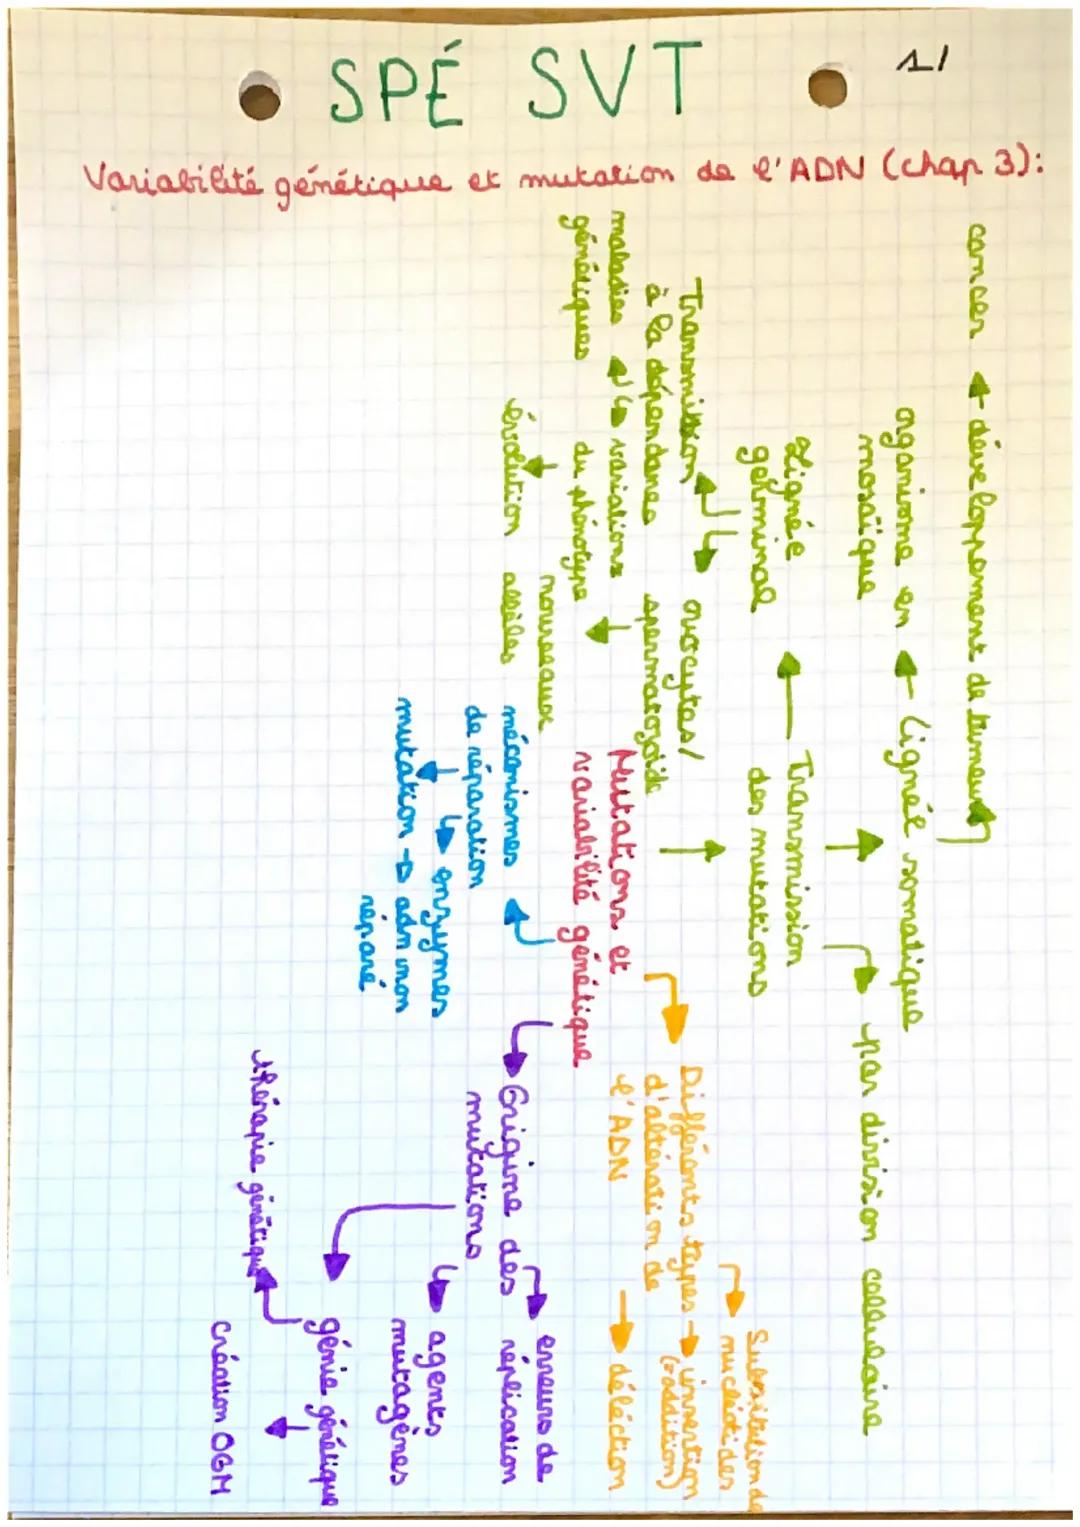 SPÉ SVT
1/
Variabilité génétique et mutation de l'ADN (chap 3):
cancer ← développement de tumeur
organisme en ← Lignée somatique
mosaïque
→ par division cellulaire
Lignée
germinal
← Transmission
des mutations
Transmission
à la dépendance
→ ovocytes/
spermatozoïde
maladies
génétiques
↳ variations
du phénotype
évolution
nouveaux
allèles
Mutations et
variabilité génétique
Différents types
d'altération de
l'ADN
Substitution de
nucléotides
→ insertion
(addition)
→ déléction
mécanismes
de réparation
↳ enzymes
mutation → adn non
réparé
Origine des
mutations
erreurs de
réplication
↳ agents
mutagènes
génie génétique
thérapie génétique
création OGM